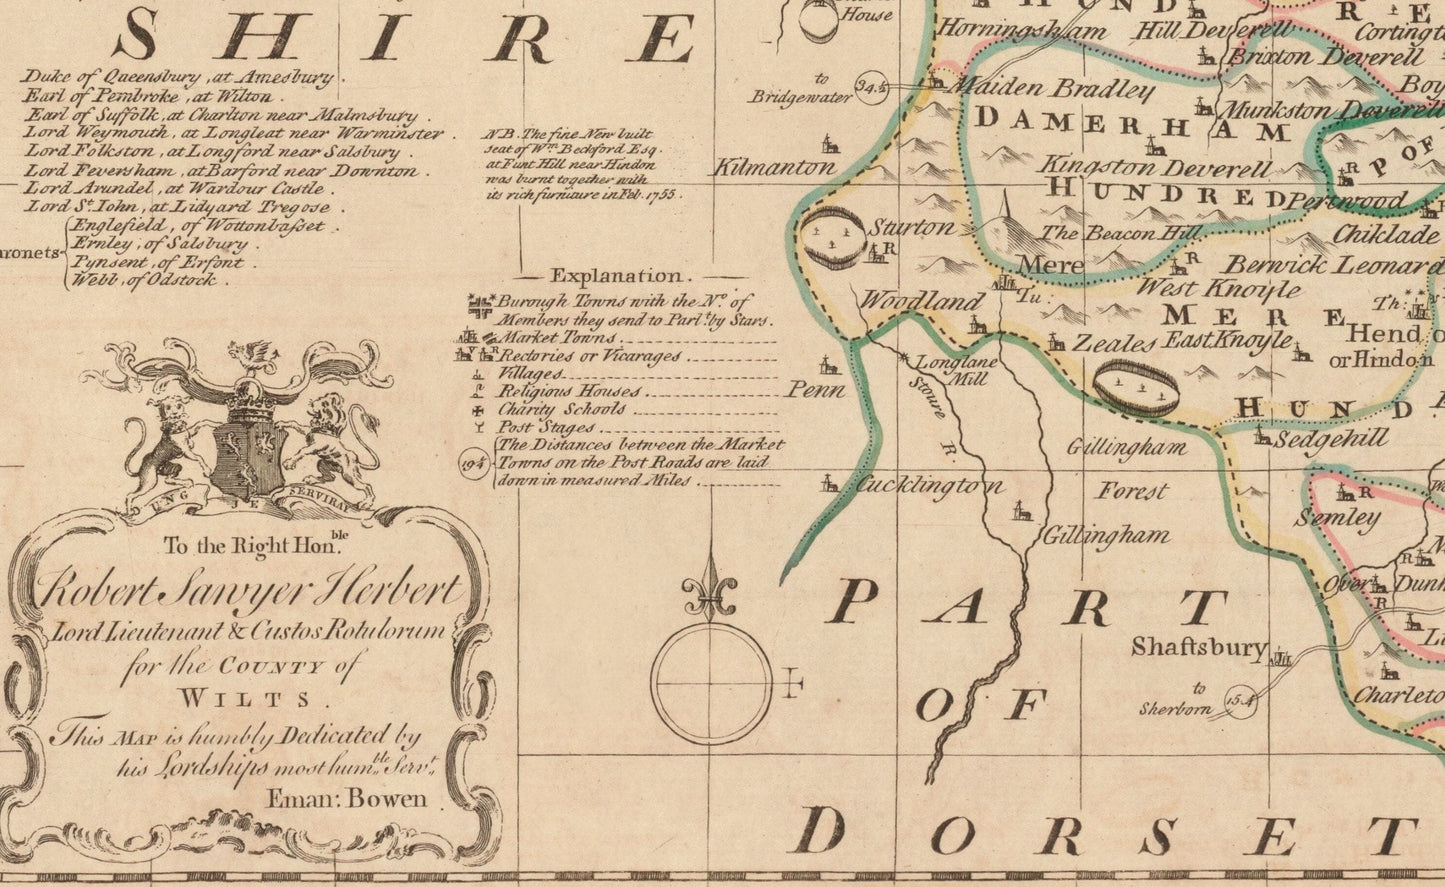 S H I R E
Duke of Queensbury, at Amesbury.
Earl of Pembroke, at Wilton.
Earl of Suffolk, at Charlton near Malmsbury.
Lord Weymouth, at Longleat near Warminster.
Lord Folkston, at Longford near Salsbury.
Lord Feversham, at Barford near Downton.
Lord Arundel, at Wardour Castle.
Lord St. Iohn, at Lidyard Tregose.
Englefield, of Wottonbasset.
Ernley, of Salsbury.
ronets
Pynsent, of Erfont.
Webb, of Odstock.
N.B. The fine New built
seat of Wm. Beckford Esq.
at Funt Hill near Hindon
was burnt together with
its rich furniture in Feb. 1755.
Explanation.
Burough Towns with the No. of
Members they send to Parlt. by Stars.
Market Towns
Rectories or Vicarages
Villages
Religious Houses
Charity Schools
Post Stages
The Distances between the Market
19¼ Towns on the Post Roads are laid
down in measured Miles
UNG JE SERVIRAY
To the Right Honble.
Robert Sawyer Herbert
Lord Lieutenant & Custos Rotulorum
for the COUNTY of
WILTS.
This MAP is humbly Dedicated by
his Lordships most humble. Servt.
Eman: Bowen
House
HUND
R E
Horningsham
Hill Deverell
Cortingt
Brixton Deverell
to
Bridgewater
34½
Maiden Bradley
Boy
Munkston Deverell
DAMERHAM
P OF
Kilmanton
Kingston Deverell
R
HUNDRED
Pertwood
Sturton
R
The Beacon Hill
Chiklade
Mere
R
Berwick Leonard
Tu:
West Knoyle
Woodland
Th:
MERE
Hend o
or Hindon
Zeales
East Knoyle
Longlane
Mill
Penn
Stoure R.
HUND.
Gillingham
Sedgehill
Cucklington
Forest
R
Semley
Gillingham
R
Over
Dunh
R
PART
Shaftsbury
OF
to
Sherborn
15¼
Charleto
DORSET